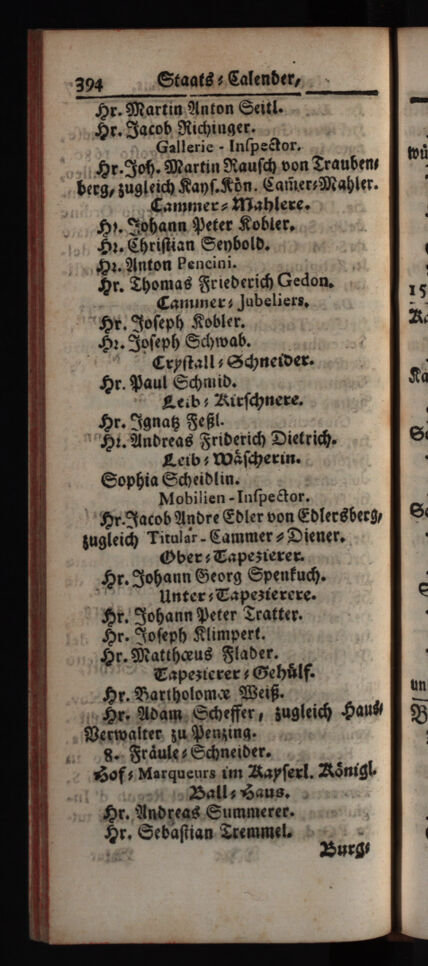 394 Staats⸗Calender,
Hr. Martin Anton Seitl.
Hr. Jacob Richinger.
Gallerie - Inspector.
Hr. Joh. Martin Rausch von Trauben⸗
berg, zugleich Kays. Kön. Cam̄er⸗Mahler.
Cammer⸗Mahlere.
Hr. Johann Peter Kobler.
Hr. Christian Seybold.
Hr. Anton Pencini.
Hr. Thomas Friederich Gedon.
Cammer⸗Jubeliers.
Hr. Joseph Kobler.
Hr. Joseph Schwab.
Crystall⸗Schneider.
Hr. Paul Schmid.
Leib⸗Kirschnere.
Hr. Ignatz Feßl.
Hr. Andreas Friderich Dietrich.
Leib⸗Wäscherin.
Sophia Scheidlin.
Mobilien - Inspector.
Hr. Jacob Andre Edler von Edlersberg,
zugleich Titular - Cammer⸗Diener.
Ober⸗Tapezierer.
Hr. Johann Georg Spenkuch.
Unter⸗Tapezierere.
Hr. Johann Peter Tratter.
Hr. Joseph Klimpert.
Hr. Matthœus Flader.
Tapezierer⸗Gehülf.
Hr. Bartholomæ Weiß.
Hr. Adam Scheffer, zugleich Haus⸗
Verwalter zu Penzing.
8. Fräule⸗Schneider.
Hof⸗Marqueurs im Kayserl. Königl.
Ball⸗Haus.
Hr. Andreas Summerer.
Hr. Sebastian Tremmel.
Burg⸗
wü
15
Ka
un